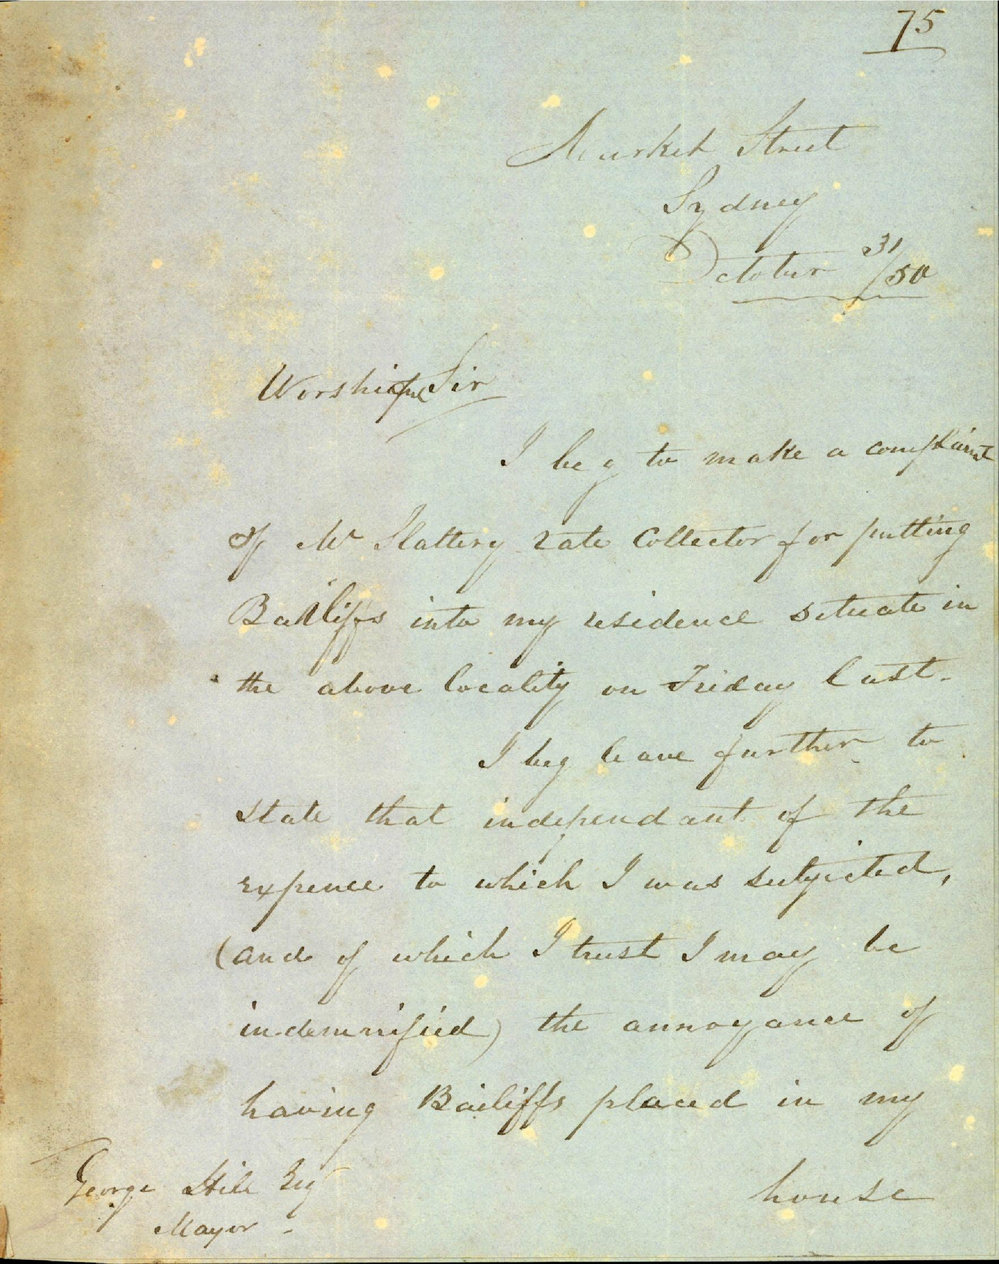 75
Market Street
Sydney
October 31/50
Worshipful Sir
I beg to make a complaint
of Mr Slattery rate Collector for putting
Bailiffs into my residence situate in
the above locality on Friday last.
I beg leave further to
state that independant of the
expence to which I was subjected,
(and of which I trust I may be
indemnified) the annoyance of
having Bailiffs placed in my
house
George Hill Esq
Mayor